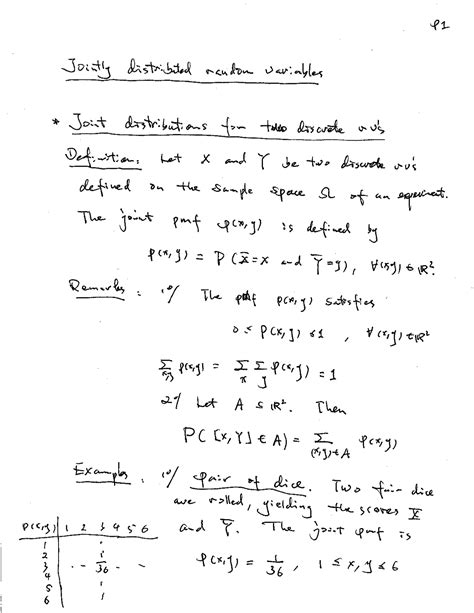 P1
Jointly distributed random variables
* Joint distributions for two discrete rv's
Definition. Let X and Y be two discrete rv's
defined on the sample space Ω of an experiment.
The joint pmf p(x,y) is defined by
p(x,y) = P(X=x and Y=y), ∀(x,y) ∈ ℝ².
Remarks : 1°/ The pmf p(x,y) satisfies
0 ≤ p(x,y) ≤ 1 , ∀(x,y) ∈ ℝ²
∑_{x,y} p(x,y) = ∑_x ∑_y p(x,y) = 1
2°/ Let A ⊆ ℝ². Then
P([X,Y] ∈ A) = ∑_{(x,y)∈A} p(x,y)
Examples . 1°/ pair of dice. Two fair dice
are rolled, yielding the scores X
and Y. The joint pmf is
p(x,y) = 1/36 , 1 ≤ x, y ≤ 6
p(x,y) 1 2 3 4 5 6
1
2
3 .. 1/36 . .
4
5
6